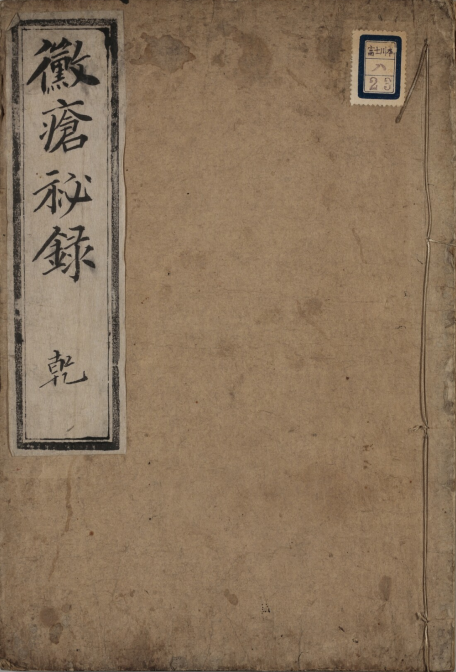 黴瘡秘録 乾
富士川本
ハ
23